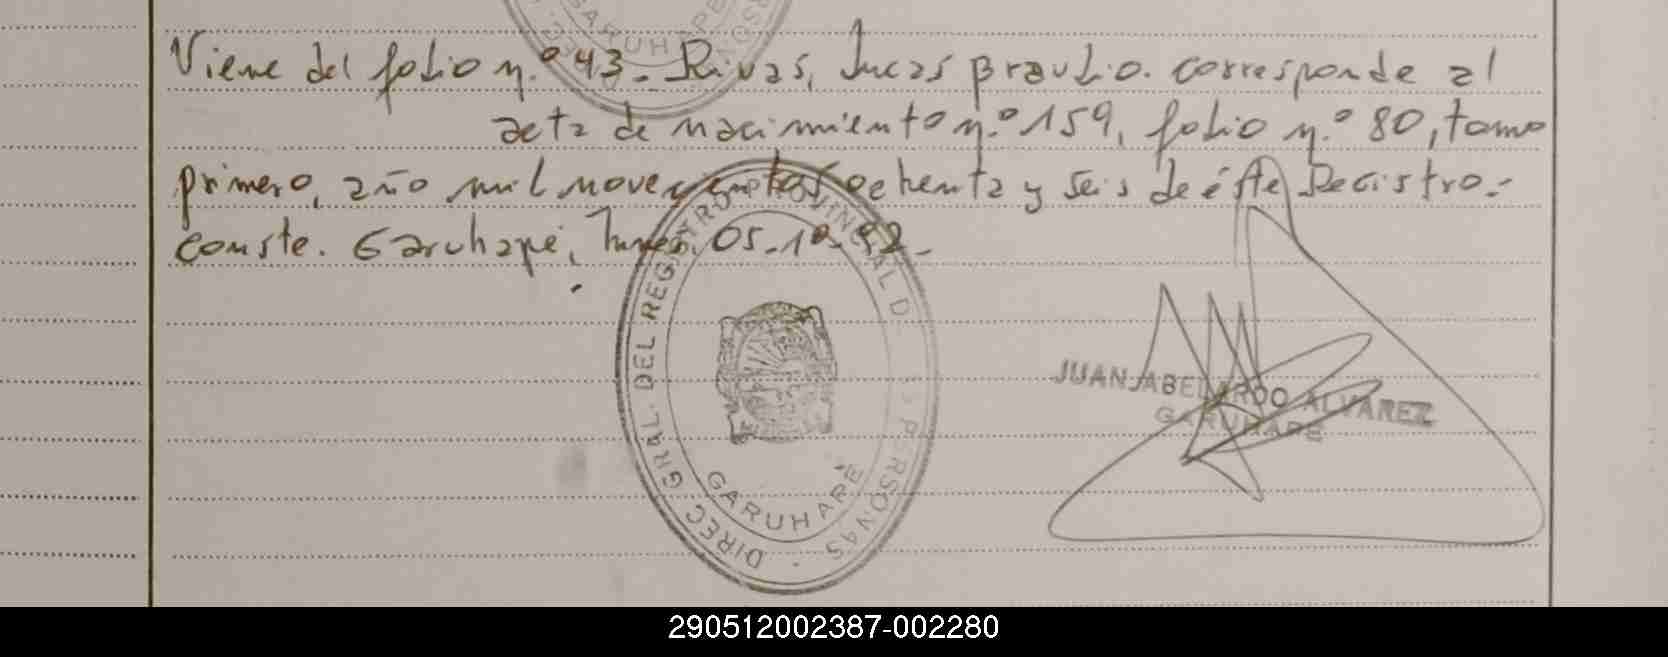 Viene del folio n.º 43_ Rivas, Lucas Braulio. corresponde al
acta de nacimiento n.º 159, folio n.º 80, tomo
primero, año mil novecientos ochenta y seis de éste Registro.-
conste. Garuhapé, lunes, 05-10-92_
DIREC GRAL. DEL REGISTRO PROVINCIAL D LAS PERSONAS
GARUHAPÉ
JUAN ABELARDO ALVAREZ
GARUHAPE
290512002387-002280